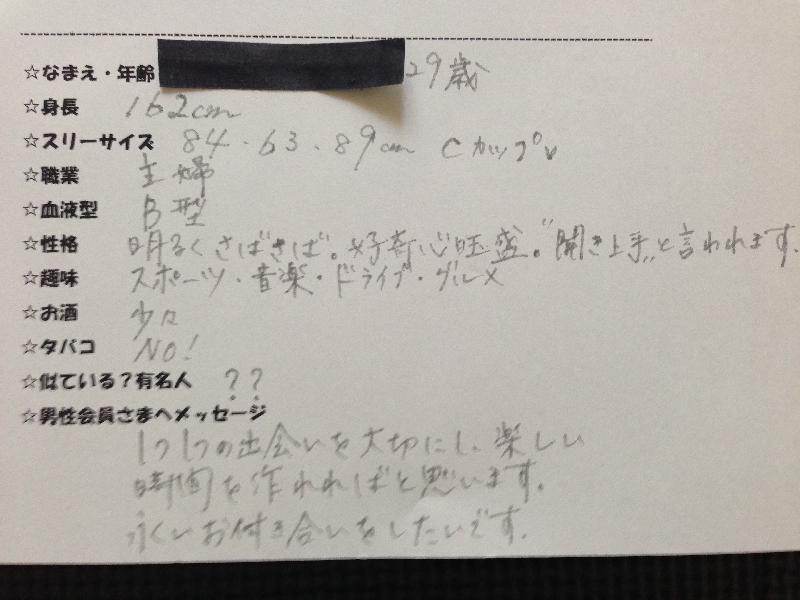 ☆なまえ・年齢 29歳
☆身長 162cm
☆スリーサイズ 84・63・89cm Cカップ
☆職業 主婦
☆血液型 B型
☆性格 明るくさばさば。好奇心旺盛。"聞き上手"と言われます。
☆趣味 スポーツ・音楽・ドライブ・グルメ
☆お酒 少々
☆タバコ NO!
☆似ている?有名人 ??
☆男性会員さまへメッセージ
1つ1つの出会いを大切にし、楽しい
時間を作れればと思います。
永いお付き合いをしたいです。